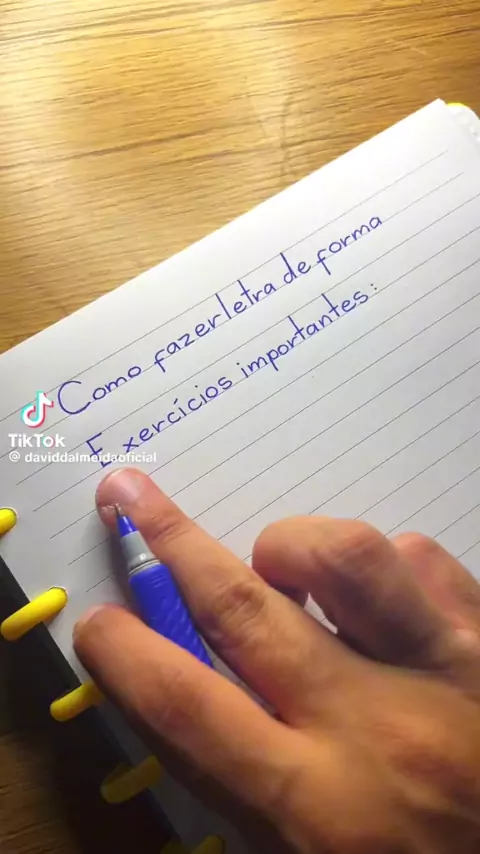 Como fazer letra de forma
Exercícios importantes:
TikTok
@ daviddalmeidaoficial